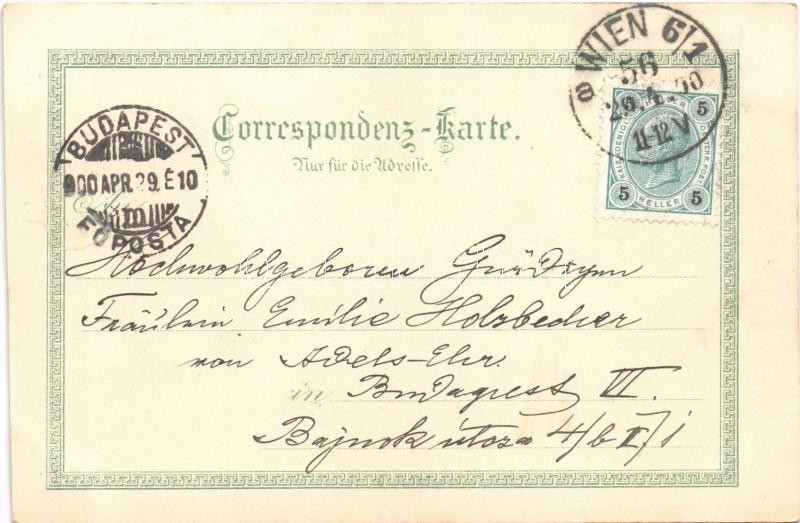 WIEN 6/1
56
11-12V
5 5
KAIS. KOENIGL. OESTERR. POST
5 HELLER 5
BUDAPEST
900 APR. 29. É 10
m
FŐPOSTA
Correspondenz-Karte.
Nur für die Adresse.
Hochwohlgeboren
Fräulein Emilie Holzbecher
von Adels-Ehr.
in Budapest VI.
Bajnok utcza 4/b I/1